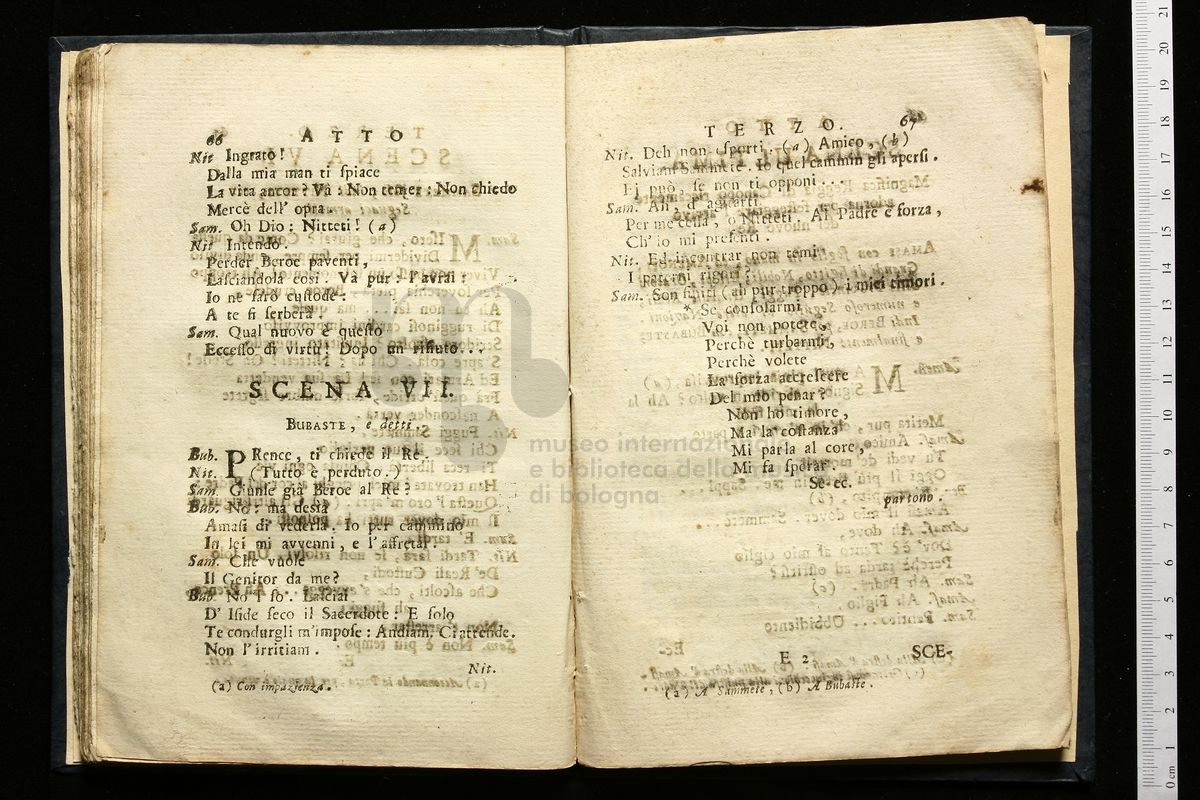 66 ATTO
Nit Ingrato!
Dalla mia man ti spiace
La vita ancor? Và: Non temer: Non chiedo
Mercè dell' opra.
Sam. Oh Dio: Nitteti! (a)
Nit Intendo.
Perder Beroe paventi,
Lasciandola così. Và pur: l'avrai:
Io ne sarò custode:
A te si serberà.
Sam. Qual nuovo è questo
Eccesso di virtù! Dopo un rifiuto...
SCENA VII.
BUBASTE, e detti.
Bub. PRence, ti chiede il Re.
Nit. (Tutto è perduto.)
Sam. Giunse già Beroe al Re?
Bub. No: ma desia
Amasi di vederla. Io per cammino
In lei mi avvenni, e l'affretai.
Sam. Che vuole
Il Genitor da me?
Bub. No'l so'. Lasciai
D' Iside seco il Sacerdote: E solo
Te condurgli m'impose: Andiam. Ci attende.
Non l'irritiam.
Nit.
(a) Con impazienza.
TERZO. 67
Nit. Deh non esporti. (a) Amico, (b)
Salviam Sammete. Io quel cammin gli apersi.
Ei può, se non ti opponi...
Sam. Ah, d' agitarti
Per me cessa, o Nitteti. Al Padre è forza,
Ch' io mi presenti.
Nit. Ed incontrar non temi
I paterni rigori?
Sam. Son finiti (ah pur troppo) i miei timori.
* Se consolarmi
Voi non potete,
Perchè turbarmi,
Perchè volete
La forza accrescere
Del mio penar?
Non ho timore,
Ma la costanza
Mi parla al core,
Mi fa sperar.
Se ec.
partono.
E 2 SCE-
(a) A Sammete, (b) A Bubaste.
museo internazionale
e biblioteca della
di bologna
0 cm 1 2 3 4 5 6 7 8 9 10 11 12 13 14 15 16 17 18 19 20 21